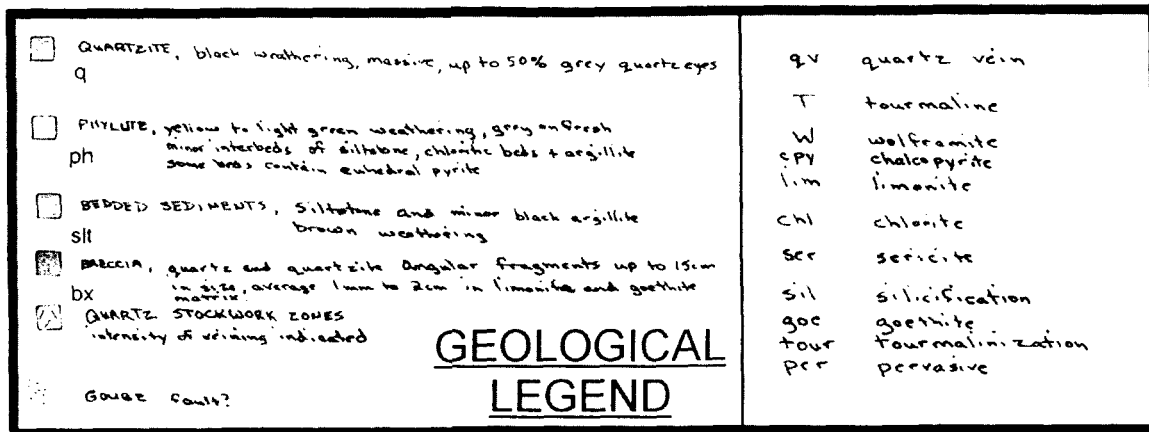 QUARTZITE, black weathering, massive, up to 50% grey quartz eyes
q
PHYLLITE, yellow to light green weathering, grey on fresh
ph minor interbeds of siltstone, chloritic beds + argillite
some beds contain euhedral pyrite
BEDDED SEDIMENTS, siltstone and minor black argillite
slt brown weathering
BRECCIA, quartz and quartzite angular fragments up to 15cm
in size, average 1mm to 2cm in limonite and goethite
bx matrix
QUARTZ STOCKWORK ZONES
intensity of veining indicated
GOUGE fault?
GEOLOGICAL
LEGEND
qv quartz vein
T tourmaline
W wolframite
cpy chalcopyrite
lim limonite
chl chlorite
ser sericite
sil silicification
goe goethite
tour tourmalinization
per pervasive